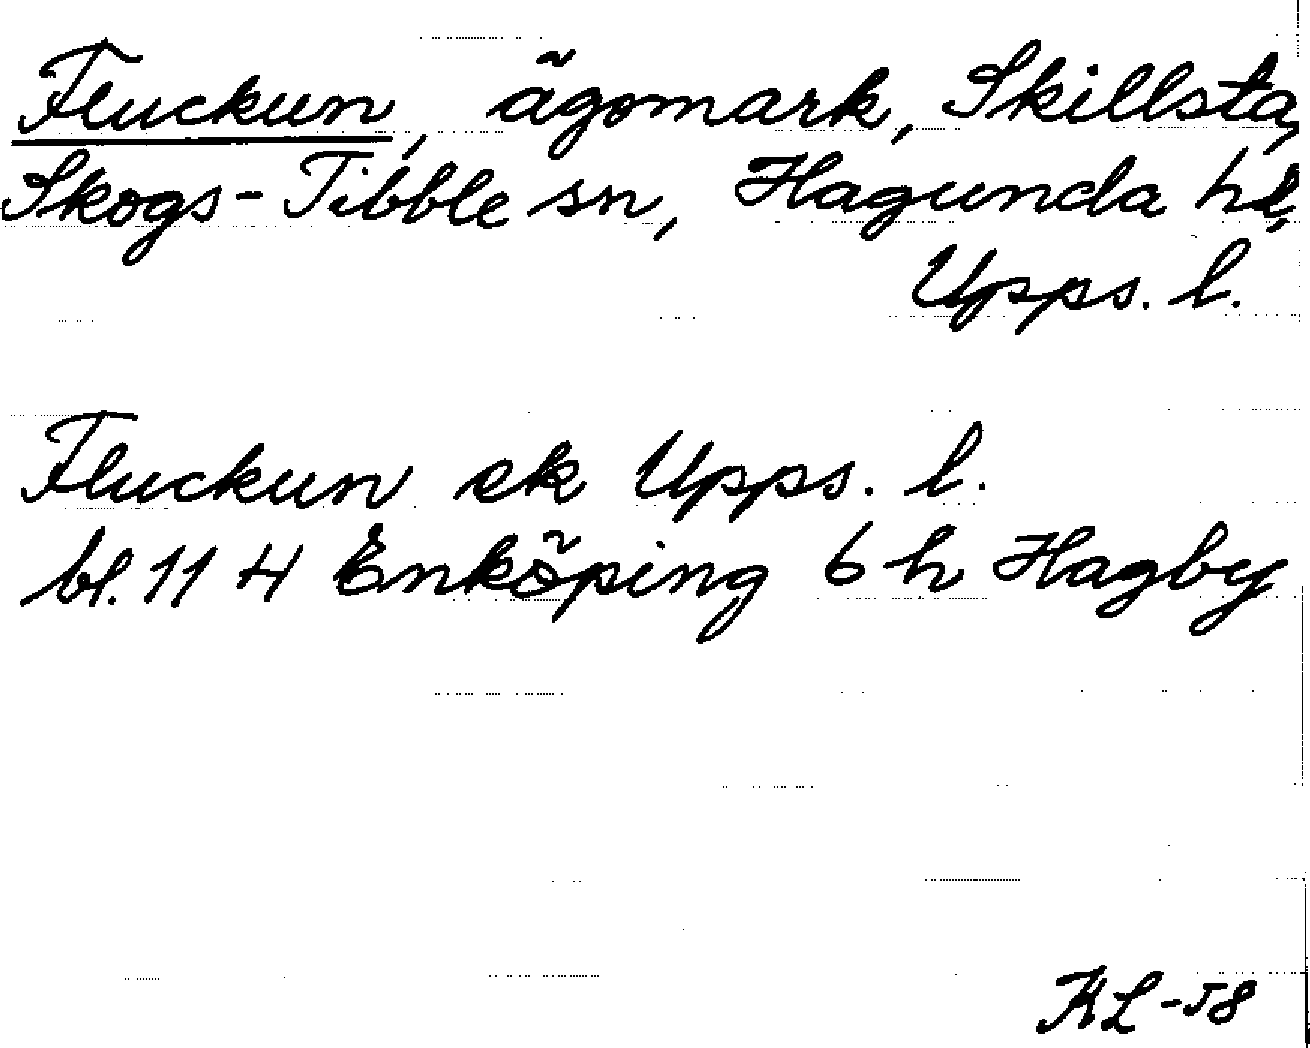 Fluckun, ägomark, Skillsta,
Skogs-Tibble sn, Hagunda hd,
Upps. l.
Fluckun ek Upps. l.
bl. 11 H Enköping 6 h Hagby
KL-58